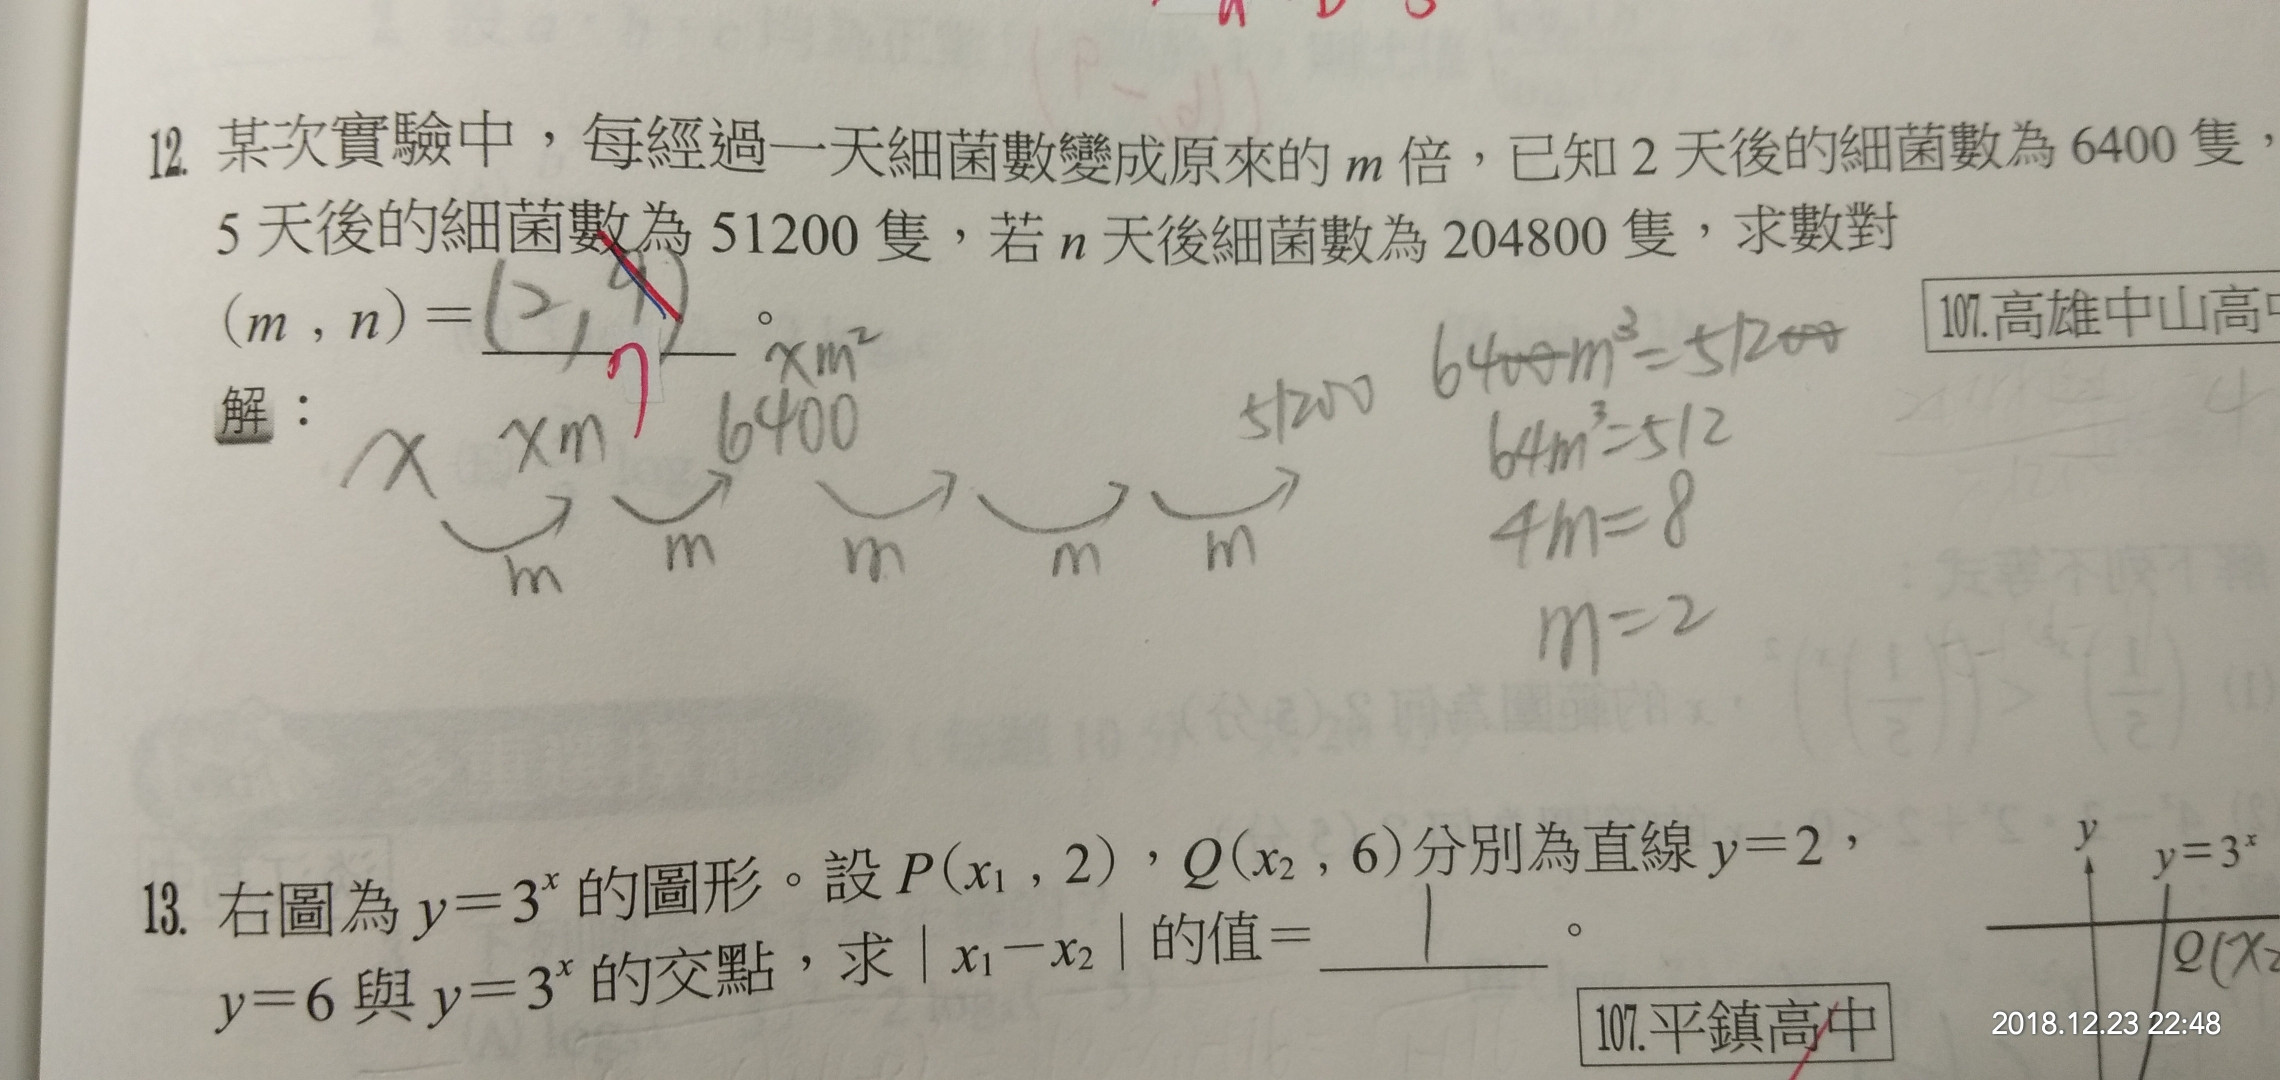 12. 某次實驗中，每經過一天細菌數變成原來的 m 倍，已知 2 天後的細菌數為 6400 隻，
5 天後的細菌數為 51200 隻，若 n 天後細菌數為 204800 隻，求數對
(m , n) = (2, 9) 。
7
107.高雄中山高中
解：
x xm xm² 6400 51200
m m m m m
6400m³=51200
64m³=512
4m=8
m=2
13. 右圖為 y=3ˣ 的圖形。設 P(x₁ , 2)，Q(x₂ , 6)分別為直線 y=2，
y=6 與 y=3ˣ 的交點，求 | x₁－x₂ | 的值= 1 。
107.平鎮高中
y y=3ˣ
Q(x₂
2018.12.23 22:48